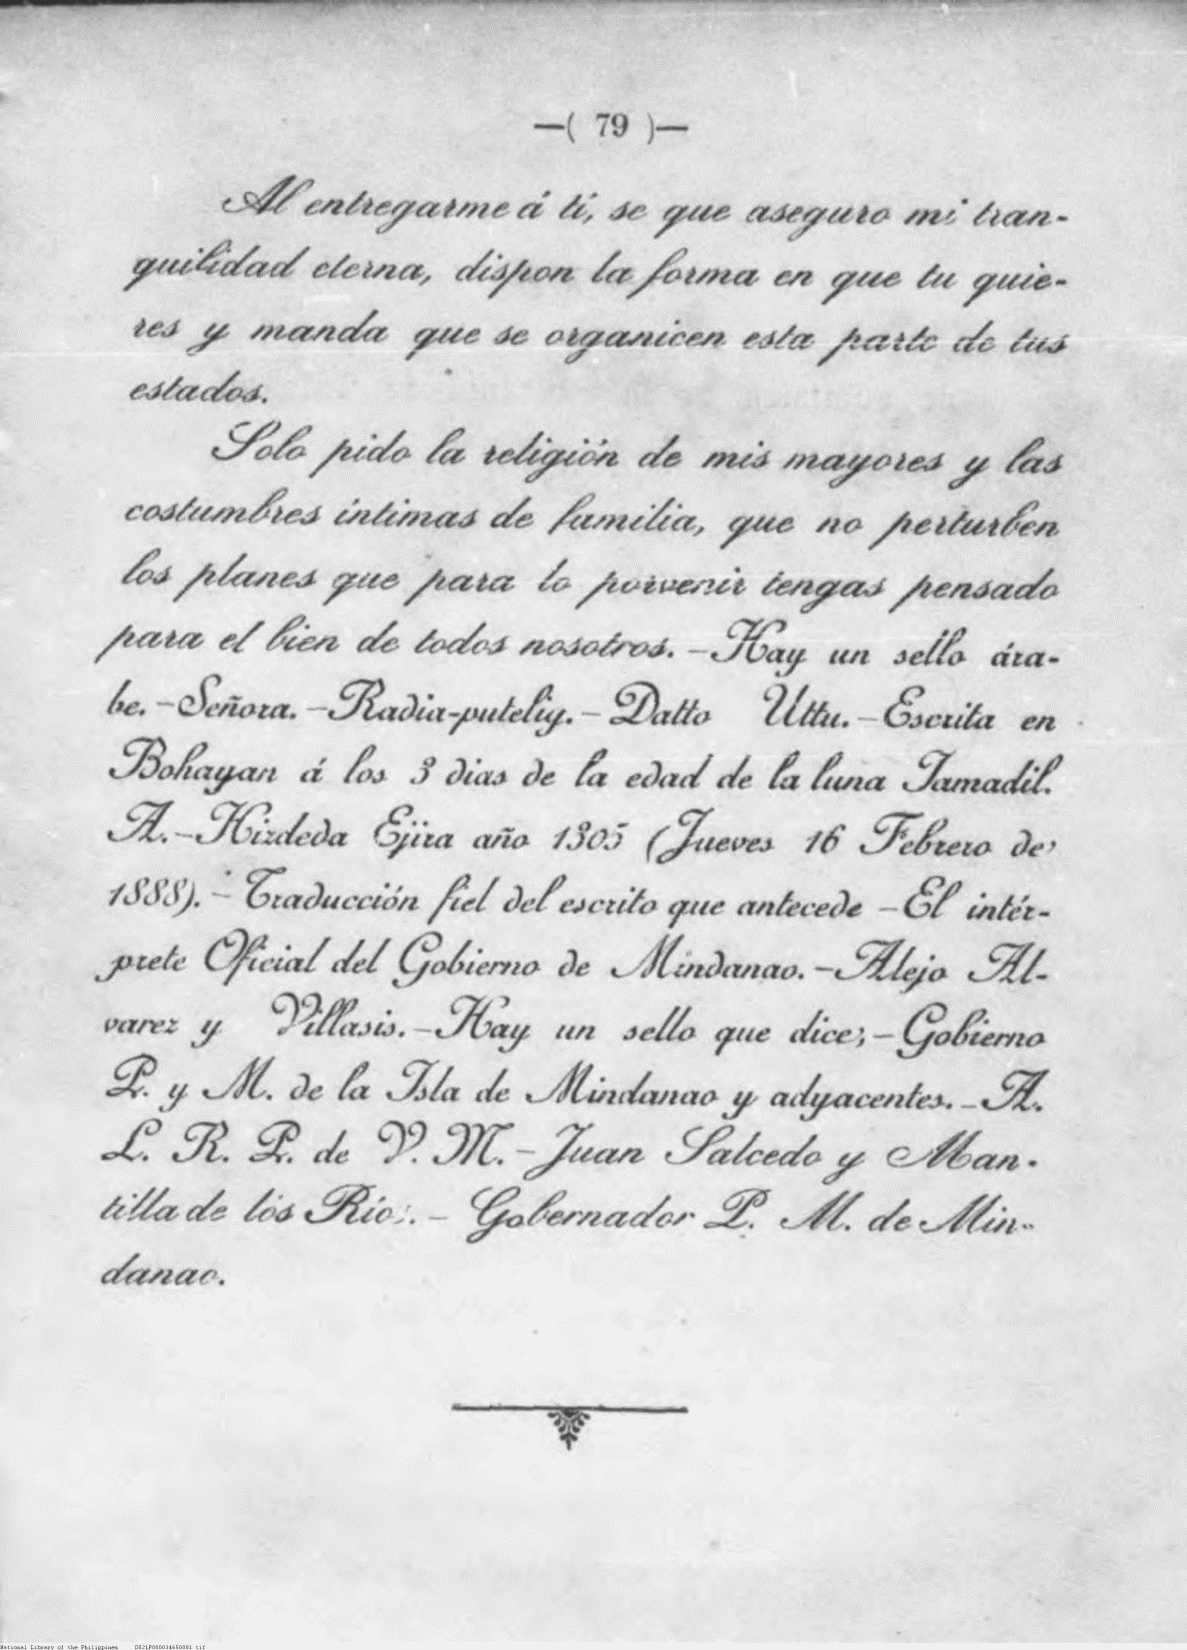 —( 79 )—
Al entregarme á tí, se que aseguro mi tran-
quilidad eterna, dispon la forma en que tu quie-
res y manda que se organicen esta parte de tus
estados.
Solo pido la religión de mis mayores y las
costumbres íntimas de familia, que no perturben
los planes que para lo porvenir tengas pensado
para el bien de todos nosotros. —Hay un sello ára-
be. —Señora. —Radia-puteliy. — Datto Uttu. — Escrita en
Bohayan á los 3 dias de la edad de la luna Jamadil.
A. — Hizdeda Ejira año 1305 (Jueves 16 Febrero de
1888). — Traducción fiel del escrito que antecede — El intér-
prete Oficial del Gobierno de Mindanao. — Alejo Al-
varez y Villasis. — Hay un sello que dice; — Gobierno
P. y M. de la Isla de Mindanao y adyacentes. — A.
L. R. P. de V. M. — Juan Salcedo y Man-
tilla de los Rios. — Gobernador P. M. de Min-
danao.
National Library of the Philippines DS21P000034650081 tif